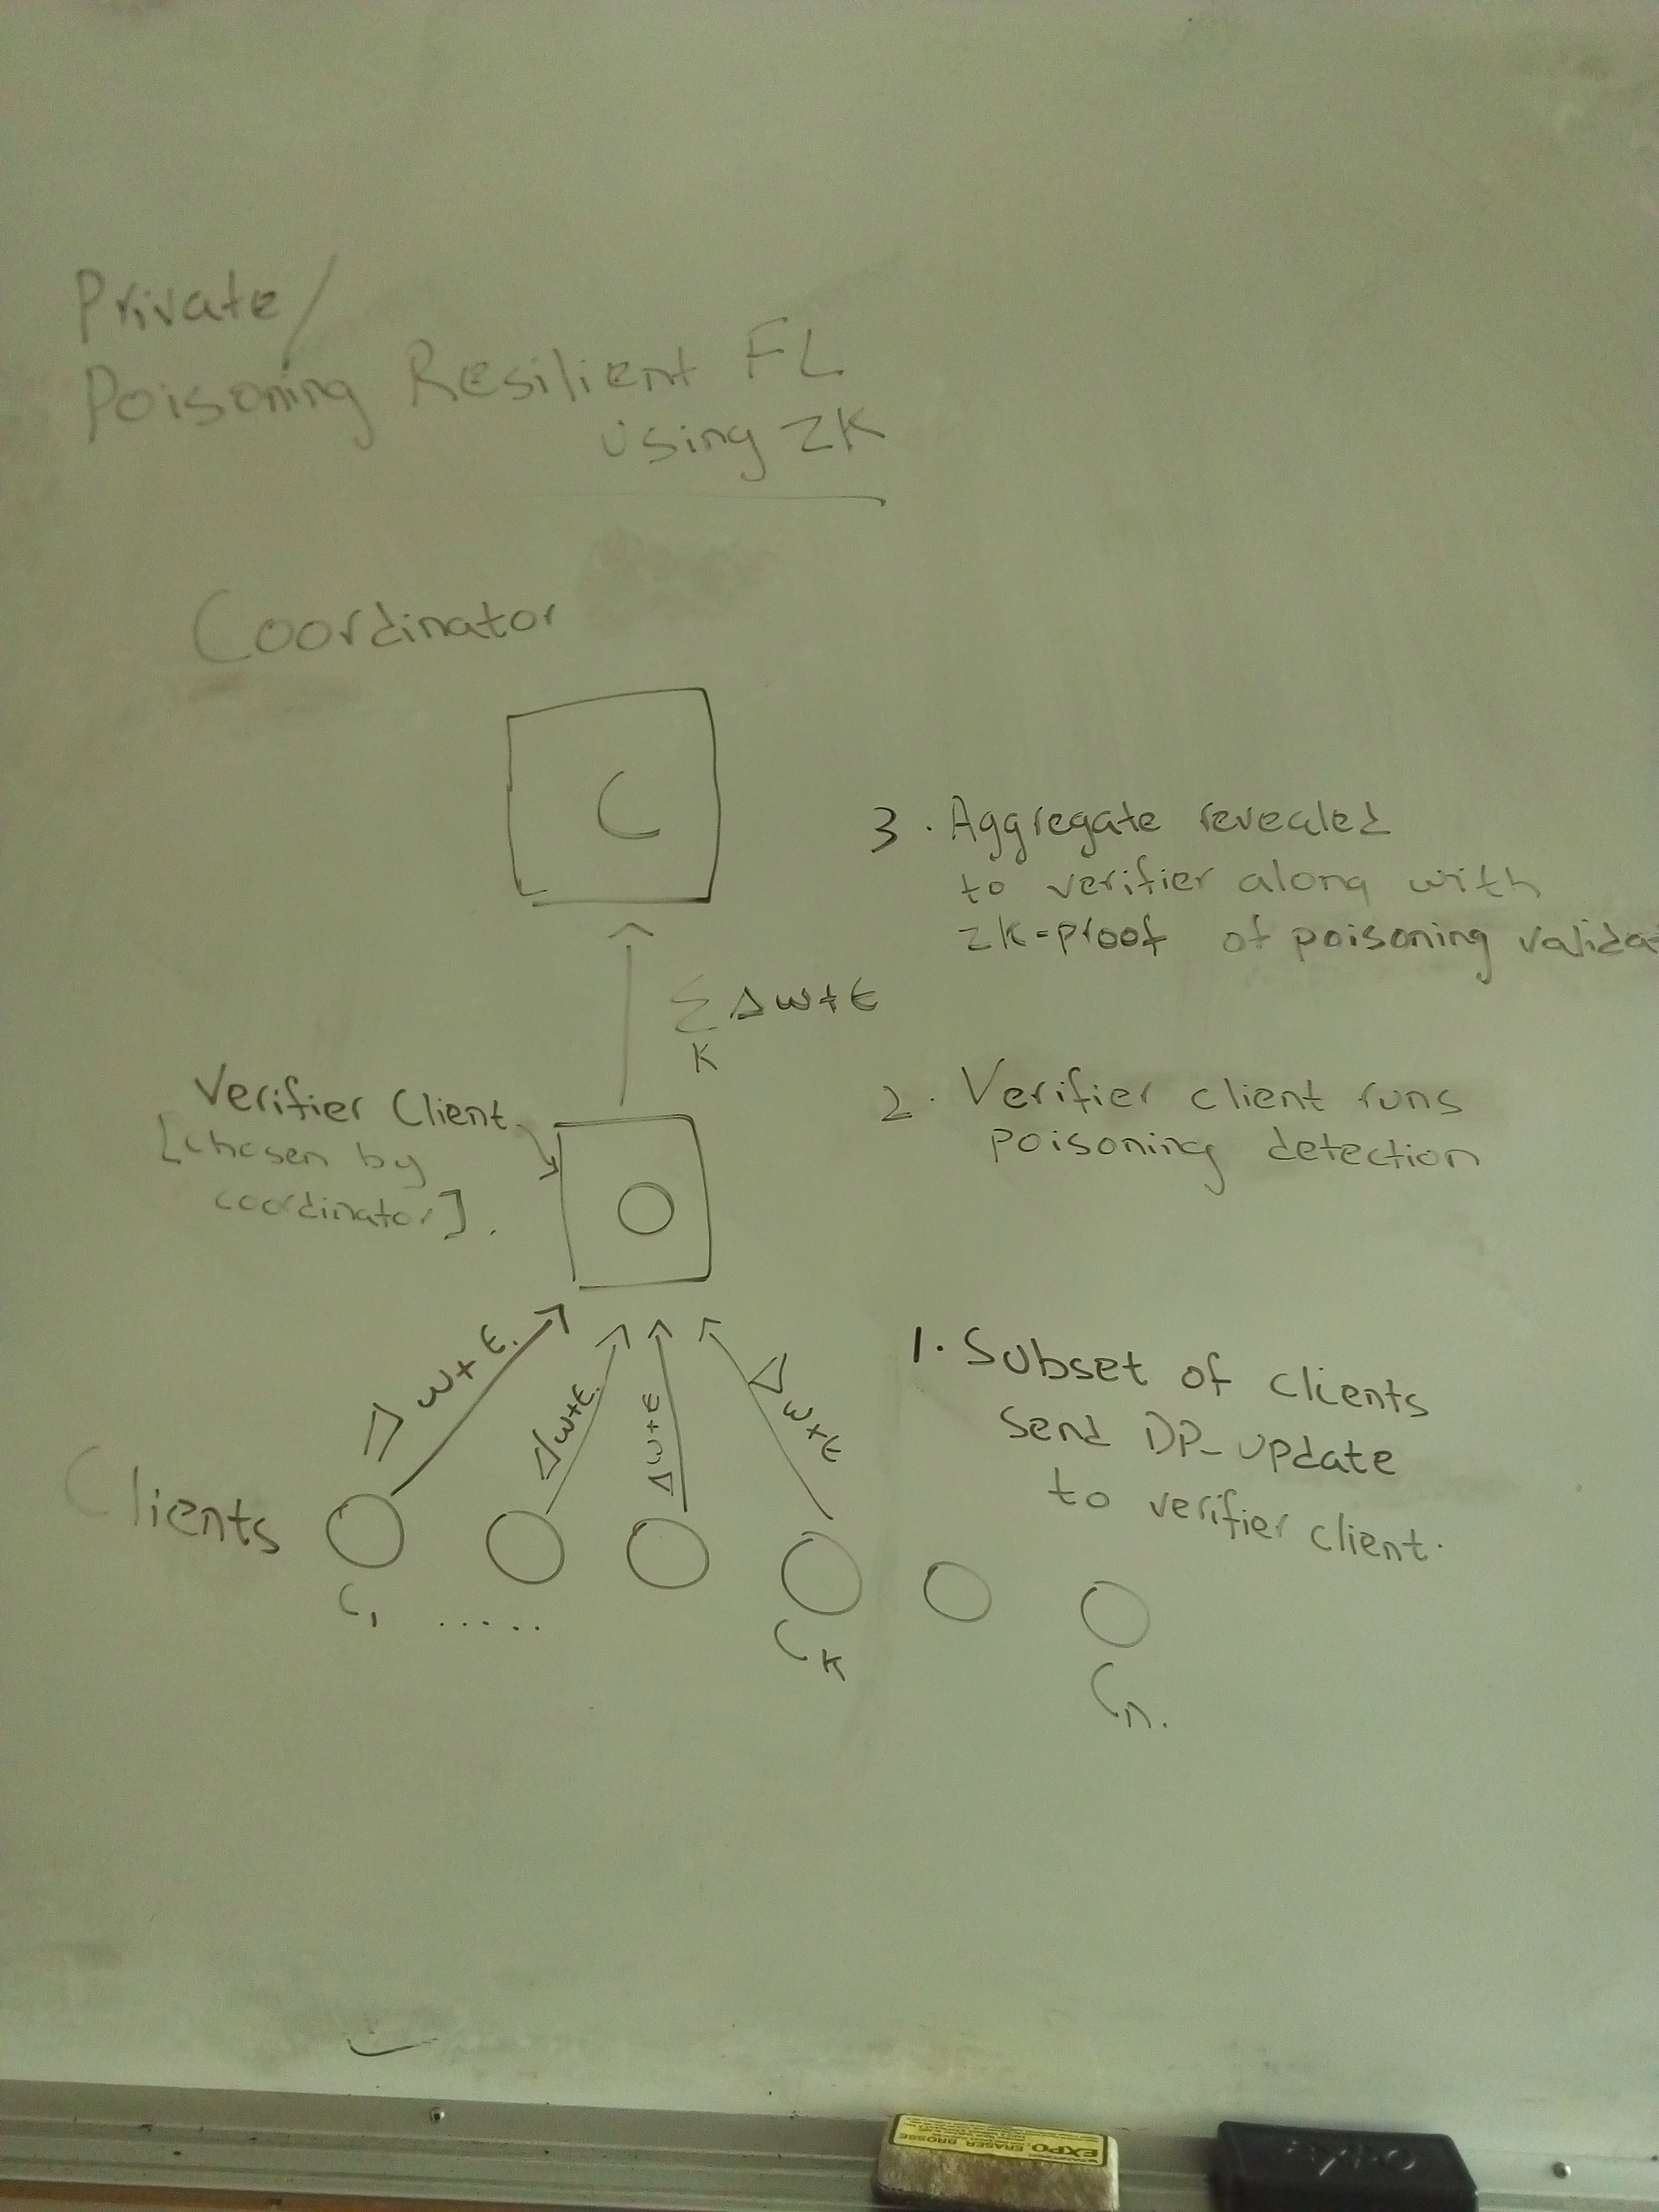 Private/
Poisoning Resilient FL
using ZK
Coordinator
C
3. Aggregate revealed
to verifier along with
zk-proof of poisoning valida
Σ Δω+ε
K
Verifier Client
[chosen by
coordinator].
2. Verifier client runs
poisoning detection
1. Subset of clients
send DP-update
to verifier client.
Δω+ε.
Δω+ε.
Δω+ε
Δω+ε
Clients
C1 ..... CK
Cn.
EXPO. ERASER BROSSE
EXPO